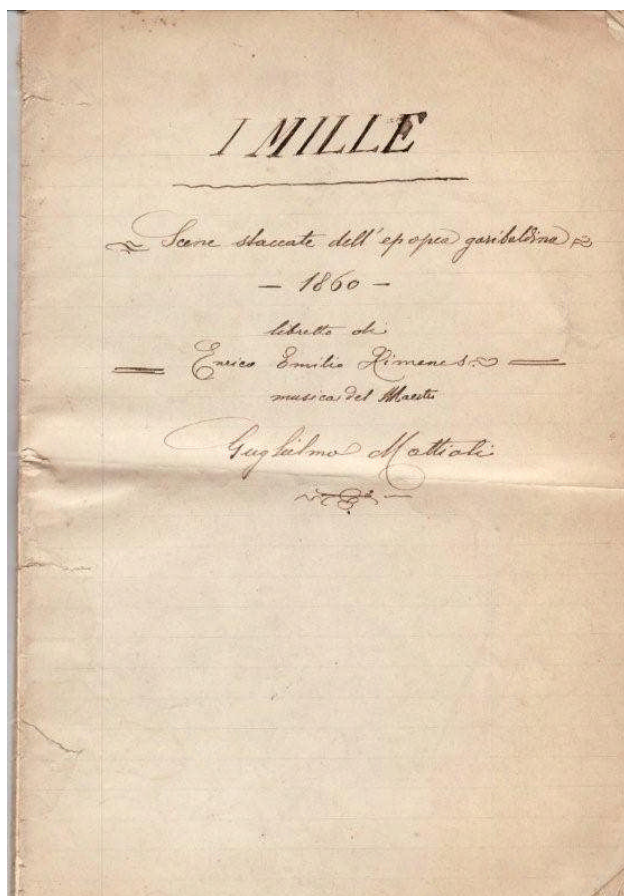 I MILLE
Scene staccate dell'epopea garibaldina
- 1860 -
libretto di
Enrico Emilio Ximenes
musica del Maestro
Guglielmo Mattioli